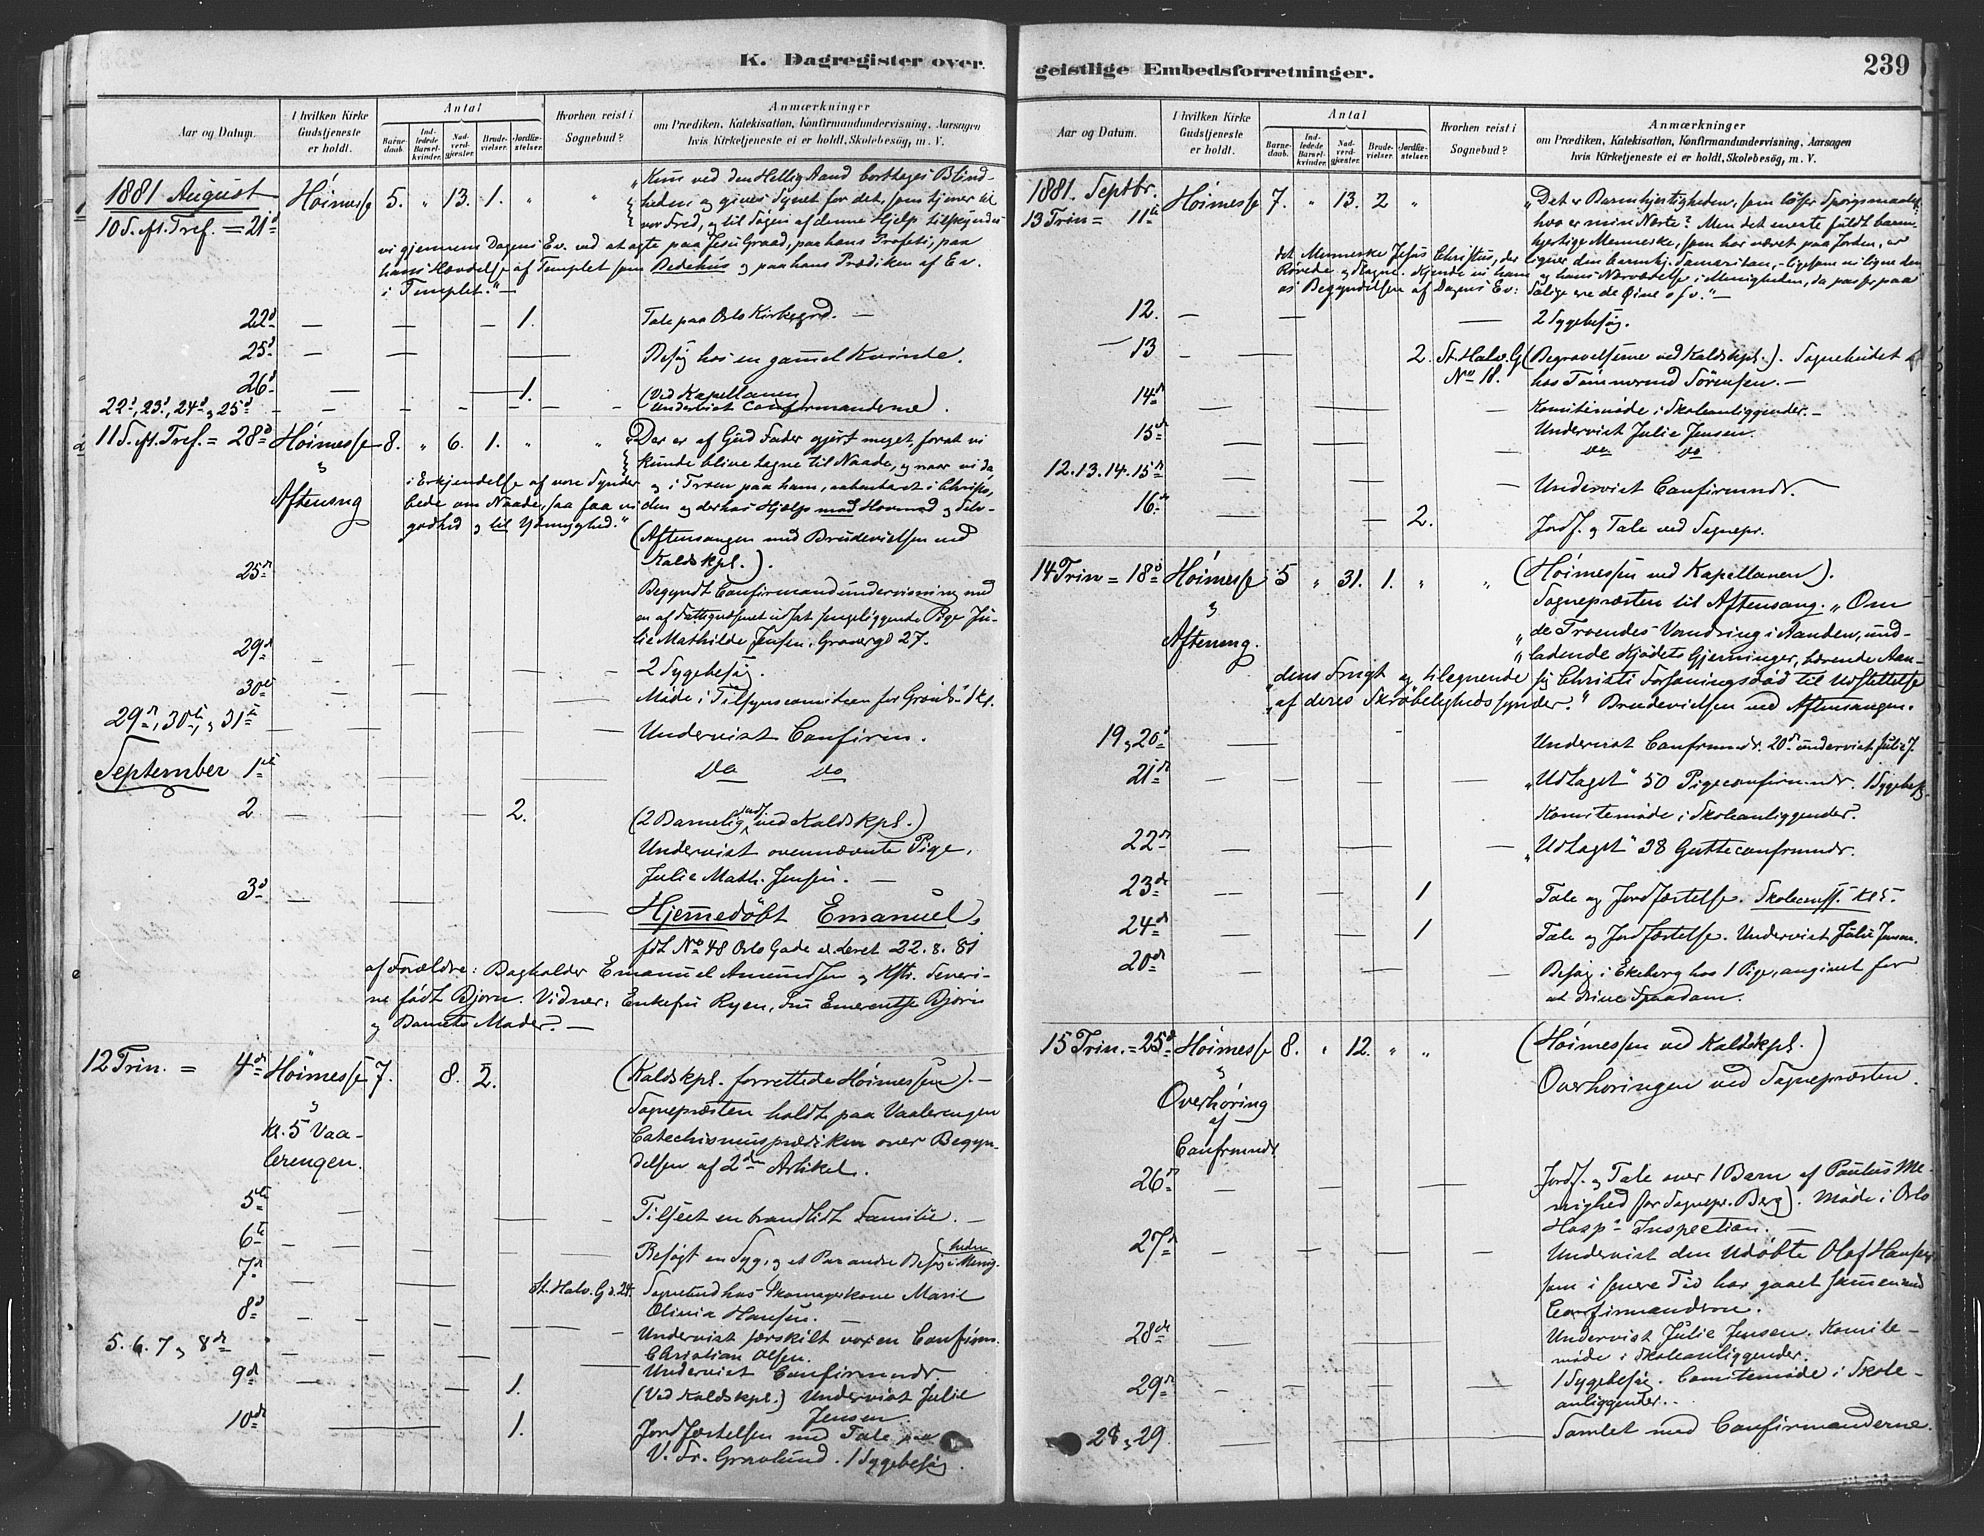 K. Dagregister over
Aar og Datum.
I hvilken Kirke Gudstjeneste er holdt.
Antal
Barne-daab.
Ind-ledede Barsel-kvinder.
Nad-verd-gjester.
Brude-vielser.
Jordfæ-stelser.
Hvorhen reist i Sognebud?
Anmærkninger
om Prædiken, Katekisation, Konfirmandundervisning, Aarsagen
hvis Kirketjeneste ei er holdt, Skolebesøg, m. V.
1881 August Höimesse 5. " 13. 1. " " "Kun ved den Hellig Aand borttages Blind-
10 S. Af. Tref. = 21de heden og gives Synet for det, som tjener til
vor Fred, og til Søgen af denne Hjelp tilskyndes
vi gjennem Dagens Ev. ved at agte paa Jesu Graad, paa hans Profeti, paa
hans Hævdelse af Templet som Bedehus og paa hans Prædiken af Ev.
i Templet." —
22d — — — 1. Tale paa Oslo Kirkegrd. —
25d — — — Besøg hos en gammel Kvinde.
26d — — 1. (Ved Kapellanen)
22d, 23d, 24d, 25d — — — Undervist Confirmanderne.
11 S. Af. Tref. = 28d Höimesse 8. " 6. 1. " " "Der er af Gud Fader gjort meget, forat vi
& kunde blive tagne til Naade, og naar vi da
Aftensang i Erkjendelse af vore Synder og i Troen paa ham, aabenbaret i Christo,
bede om Naade, saa faa vi den og derhos Hjelp mod Hovmod og Selv-
godhed og til Ydmyghed."
(Aftensangen med Brudevielsen ved
Kaldskpl.).
25d Begyndt Confirmandundervisning med
en af Fattigvæsenet udsat sengeliggende Pige Ju-
lie Mathilde Jensen, Grønergd 27.
29d — — — 2 Sygebesøg.
30te — — — Møde i Tilsynscomiteen for
29d, 30te, og 31te — — — Undervist Confirm.
September 1ste — — — Do Do
2 — — 2. (2 Barnelig ved Kaldskpl.)
Undervist ovennævnte Pige,
Julie Math. Jensen. —
3d — — — Hjemmedøbt Emanuel,
fdt No 48 Oslo Gade
22. 8. 81
af Forældre: Bogholder Emanuel Amundsen og Hstr. Severi-
ne født Bjørn. Vidner: Enkefru Ryen, Fru Emerentse Bjørn
og Barnets Moder. —
12 Trin. = 4de Höimesse 7. 8. 2. (Kaldskpl. forrettede Höimessen). —
& Sognepræsten holdt paa Vaalerengen
Kl. 5 Vaa- Catechismusprædiken over Begyn-
lerengen. delsen af 2den Artikel.
5te — — — Tilseet en brandlidt Familie. —
6te — — — Besøgt en Syg, og et Par andre Besøg i Menig.
7de — — — St. Halv. G. 24. Sognebud hos Skomagerkone Marie
Olivia Hansen. —
8de — — — Undervist særskilt voxen Confirm.
Christian Olsen.
5. 6. 7 og 8de — — — Undervist Confirmandr.
9de — — 1. (Ved Kaldskpl.) Undervist Julie
Jensen.
10de — — 1. Jordfæstelsen med Tale paa
V. Fr. Gravlund. 1 Sygebesøg.
geistlige Embedsforretninger.
239
Aar og Datum.
I hvilken Kirke Gudstjeneste er holdt.
Antal
Barne-daab.
Ind-ledede Barsel-kvinder.
Nad-verd-gjester.
Brude-vielser.
Jordfæ-stelser.
Hvorhen reist i Sognebud?
Anmærkninger
om Prædiken, Katekisation, Konfirmandundervisning, Aarsagen
hvis Kirketjeneste ei er holdt, Skolebesøg, m. V.
1881. Septbr. Höimesse 7. " 13. 2 " "Det er Barmhjertigheden, som löser Spörgsmaalet:
13 Trin = 11te hvo er min Næste? Men det eneste fuldt barm-
hjertige Menneske, som har været paa Jorden, er
det Menneske Jesus Christus, der ligner den barmhj. Samaritan, — ligesom vi ligne den
Røvede og Slagne. Kjende vi ham og hans Nærværelse i Menigheden, da passer paa
os Begyndelsen af Dagens Ev: Salige ere de Øine o. s. v." —
12. — — — 2 Sygebesøg.
13 — — 2. St. Halv. G No 18. (Begravelserne ved Kaldskpl.). Sognebudet
hos Tømmermd Sörensen. —
14de — — — Komitemøde i Skoleanliggender. —
15de — — — Undervist Julie Jensen.
Do Do
12. 13. 14. 15de — — — Undervist Confirmndr. —
16de — — 2. Jordf. og Tale ved Sognepr.
14 Trin = 18de Höimesse 5 " 31. 1. " " (Höimessen ved Kapellanen).
& Sognepræsten til Aftensang. "Om
Aftensng. "de Troendes Vandring i Aanden, und-
"ladende Kjödets Gjerninger, bærende Aan-
"dens Frugt og tilegnende sig Christi Forsoningsdöd til Udslettelse
"af deres Skröbelighedssynder." Brudevielsen ved Aftensangen.
19 og 20de — — — Undervist Confrmndr. 20de undervist Julie J.
21de — — — "Udtaget" 50 Pigeconfirmndr. 1 Sygebesøg.
Komitemøde i Skoleanliggender.
22de — — — "Udtaget" 38 Gutteconfrmndr.
23de — — 1 Tale og Jordfæstelse.
24de — — 1 Tale og Jordfæstelse. Undervist Julie Jensen.
20de — — — Besøg i Ekeberg hos 1 Pige, angivet for
at drive Spaadom.
15 Trin. = 25de Höimesse 8. " 12. " " (Höimessen ved Kaldskpl.)
& Overhøringen ved Sognepræsten.
Overhöring
af
Confrmndr
26de — — — Jordf. og Tale over 1 Barn af Paulus Me-
nighed for Sognepr. Berg). Møde i Oslo
Hosp. Inspection. —
27de — — — Undervist den Udøbte Olaf Hansen,
som i senere Tid har gaaet sammen med
Confirmanderne.
28de — — — Undervist Julie Jensen. Komite-
møde i Skoleanliggender.
29de — — — 1 Sygebesøg. Comitemøde i Skole-
anliggender. —
28 og 29. — — — Samlet med Confirmanderne.